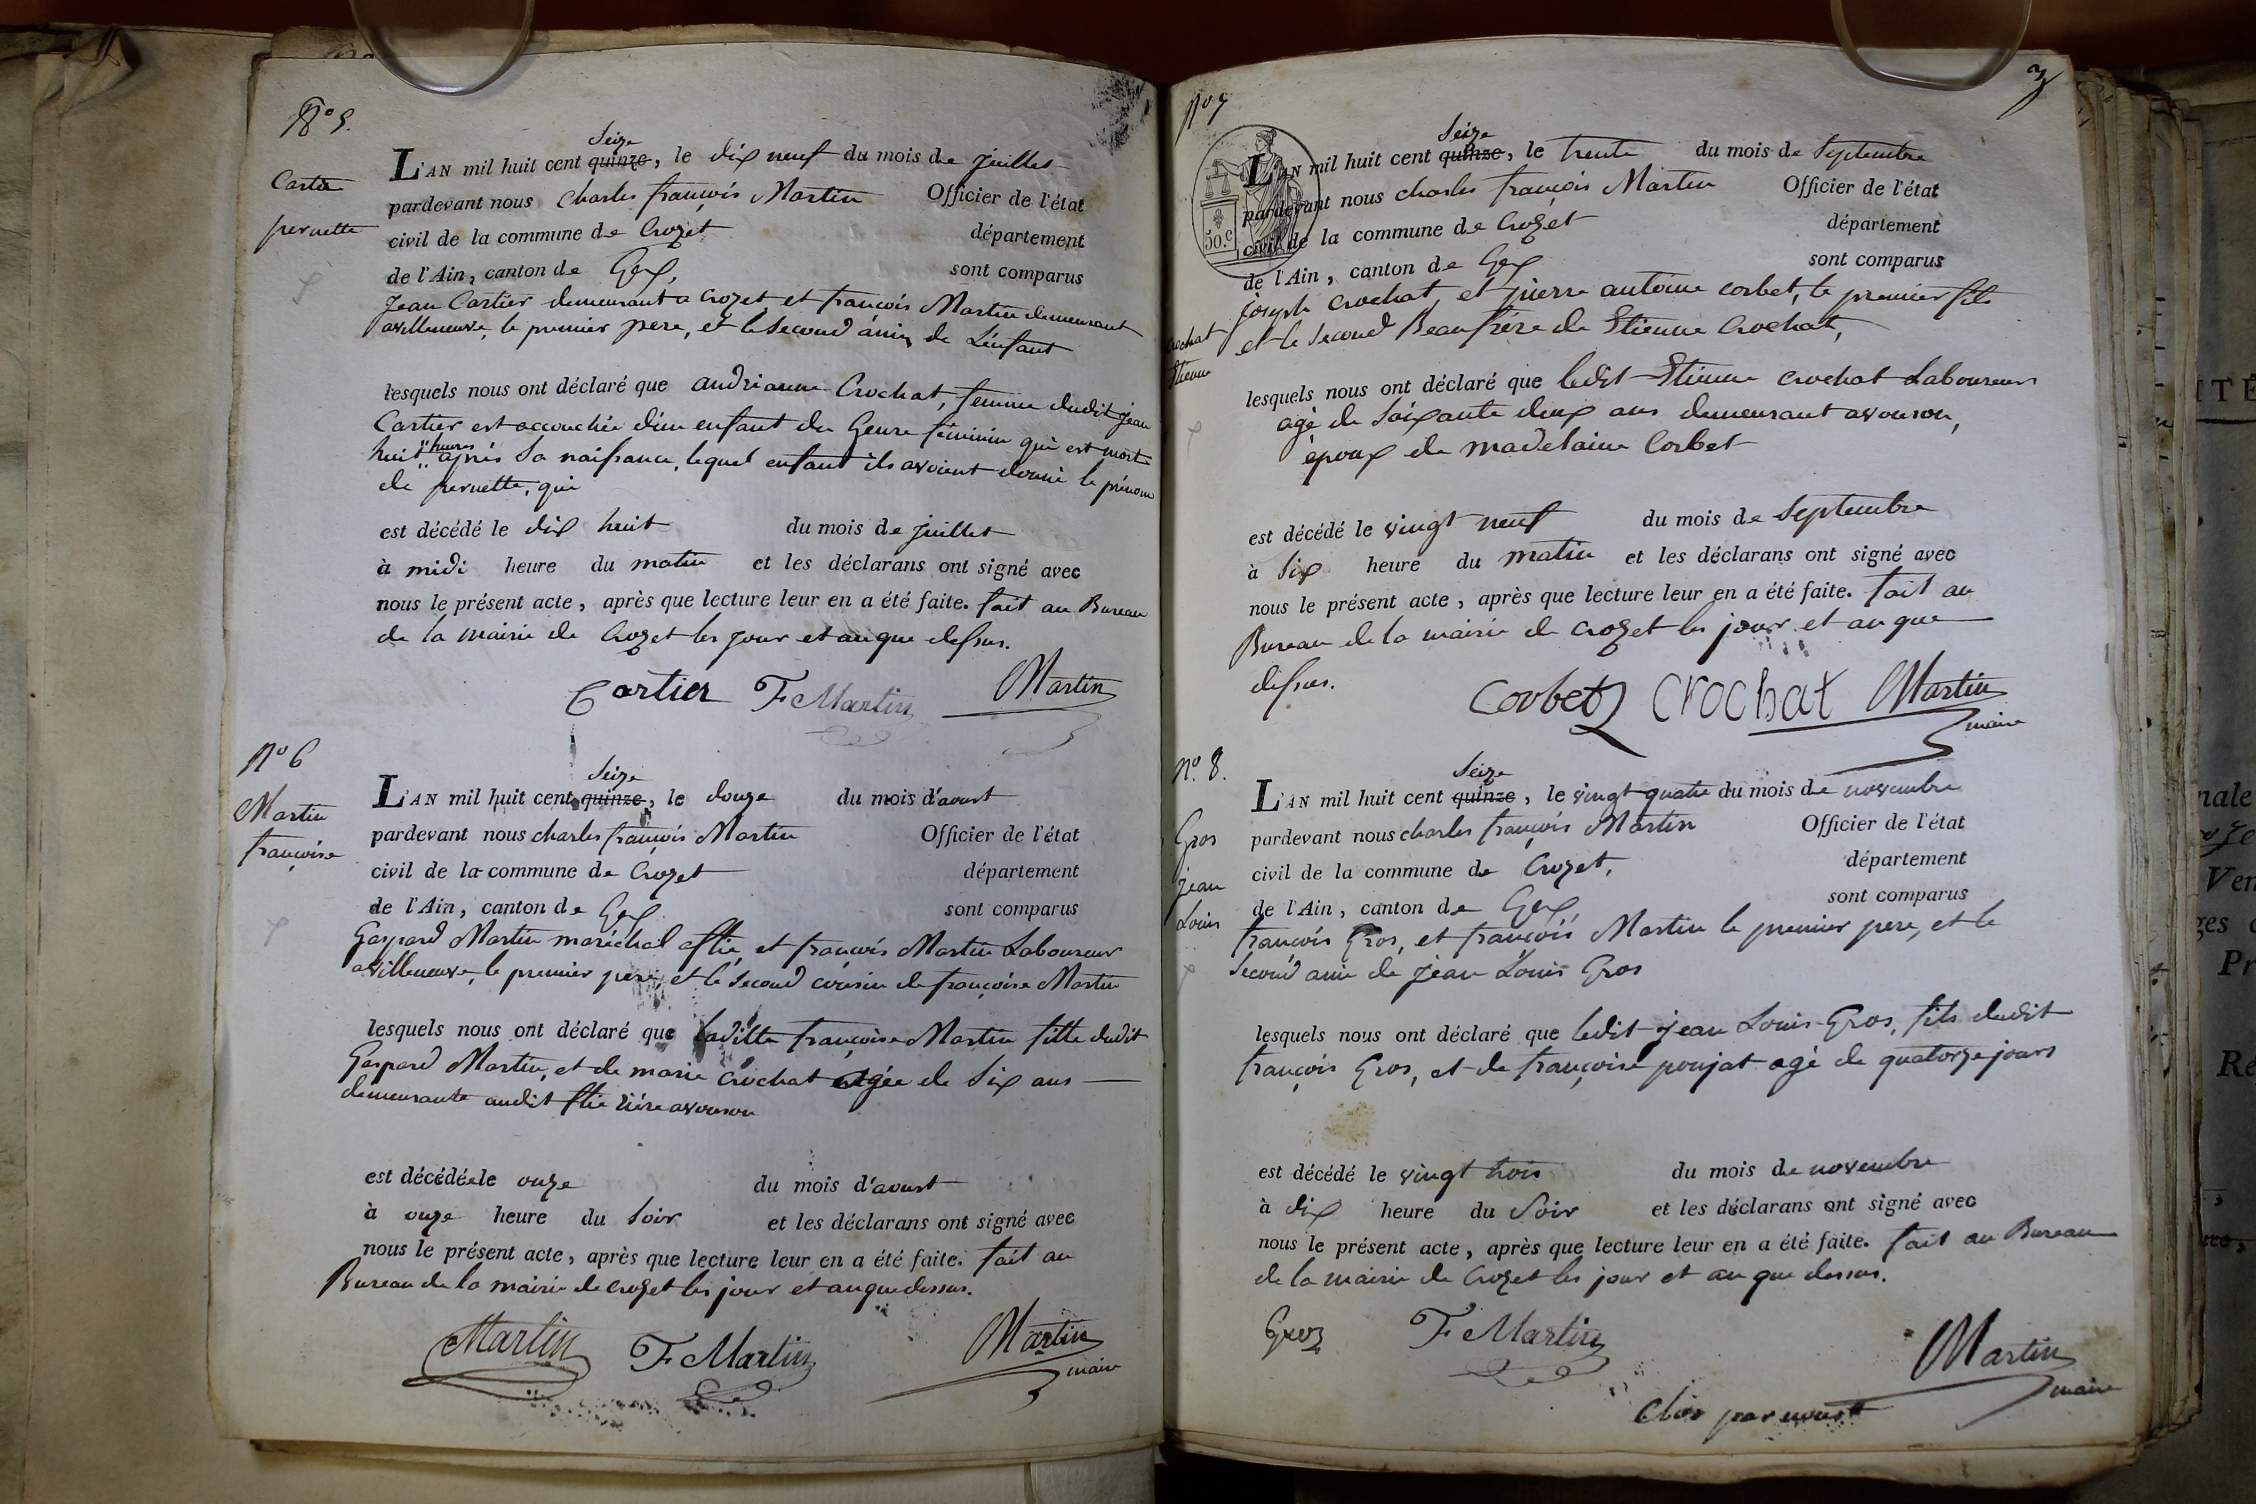 N° 5.
Cartier
pernette
Seize
L'AN mil huit cent quinze, le dix neuf du mois de juillet
pardevant nous charles françois Martin Officier de l'état
civil de la commune de Crozet département
de l'Ain, canton de Gex, sont comparus
Jean Cartier demeurant a Crozet et françois Martin demeurant
avilleneuve, le premier pere, et le second ámi, de L'enfant
lesquels nous ont déclaré que andrianne Crochat, femme dudit jean
Cartier est accouchée d'un enfant du Genre féminin qui est morte
huit heures après sa naissance, lequel enfant ils avoient donné le prénom
de pernette, qui
est décédé le dix huit du mois de juillet
à midi heure du matin et les déclarans ont signé avec
nous le présent acte, après que lecture leur en a été faite. fait au Bureau
de la mairie de Crozet les jour et an que dessus.
Cartier F Martin Martin
N° 6
Martin
françoise
Seize
L'AN mil huit cent quinze, le douze du mois d'aoust
pardevant nous charles françois Martin Officier de l'état
civil de la commune de Crozet département
de l'Ain, canton de Gex sont comparus
Gaspard Martin maréchal aflie, et françois Martin Laboureur
avilleneuve, le premier pere, et le second cousin de françoise Martin
lesquels nous ont déclaré que laditte françoise Martin fille dudit
Gaspard Martin, et de marie Crochat agée de six ans
demeurante audit flie riére avouson
est décédée le onze du mois d'aoust
à onze heure du soir et les déclarans ont signé avec
nous le présent acte, après que lecture leur en a été faite. fait au
Bureau de la mairie de crozet les jour et an que dessus.
Martin F Martin Martin
maire
3
N° 7
crochat
Etienne
50.c
Seize
L'AN mil huit cent quinze, le trente du mois de Septembre
pardevant nous charles françois Martin Officier de l'état
civil de la commune de Crozet département
de l'Ain, canton de Gex sont comparus
joseph crochat, et pierre antoine corbet, le premier fils
et le second Beaufrére de Etienne Crochat,
lesquels nous ont déclaré que ledit Etienne crochat Laboureur
agé de soixante deux ans demeurant avouson,
époux de madelaine Corbet
est décédé le vingt neuf du mois de septembre
à six heure du matin et les déclarans ont signé avec
nous le présent acte, après que lecture leur en a été faite. fait au
Bureau de la mairie de crozet les jour et an que
dessus.
Corbet Crochat Martin
maire
N° 8.
Gros
jean
Louis
Seize
L'AN mil huit cent quinze, le vingt quatre du mois de novembre
pardevant nous charles françois Martin Officier de l'état
civil de la commune de Crozet, département
de l'Ain, canton de Gex sont comparus
françois Gros, et françois Martin le premier pere, et le
second ami de jean Louis Gros
lesquels nous ont déclaré que ledit jean Louis Gros, fils dudit
françois Gros, et de françoise poujat agé de quatorze jours
est décédé le vingt trois du mois de novembre
à dix heure du soir et les déclarans ont signé avec
nous le présent acte, après que lecture leur en a été faite. fait au Bureau
de la mairie de Crozet les jour et an que dessus.
Gros F Martin Martin
maire
Clos par nous